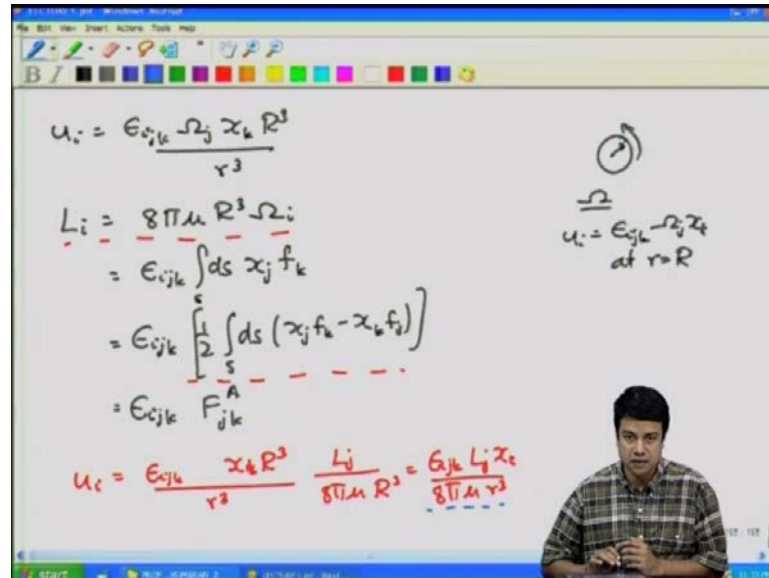 File Edit View Insert Actions Tools Help
B I
uᵢ = ϵᵢⱼₖ Ωⱼ xₖ R³ / r³
Lᵢ = 8πμ R³ Ωᵢ
= ϵᵢⱼₖ ∫ₛ ds xⱼ fₖ
= ϵᵢⱼₖ [1/2 ∫ₛ ds (xⱼ fₖ - xₖ fⱼ)]
= ϵᵢⱼₖ Fⱼₖᴬ
uᵢ = ϵᵢⱼₖ xₖ R³ / r³ Lⱼ / 8πμ R³ = ϵᵢⱼₖ Lⱼ xₖ / 8πμ r³
Ω
uᵢ = ϵᵢⱼₖ Ωⱼ xₖ
at r=R
start